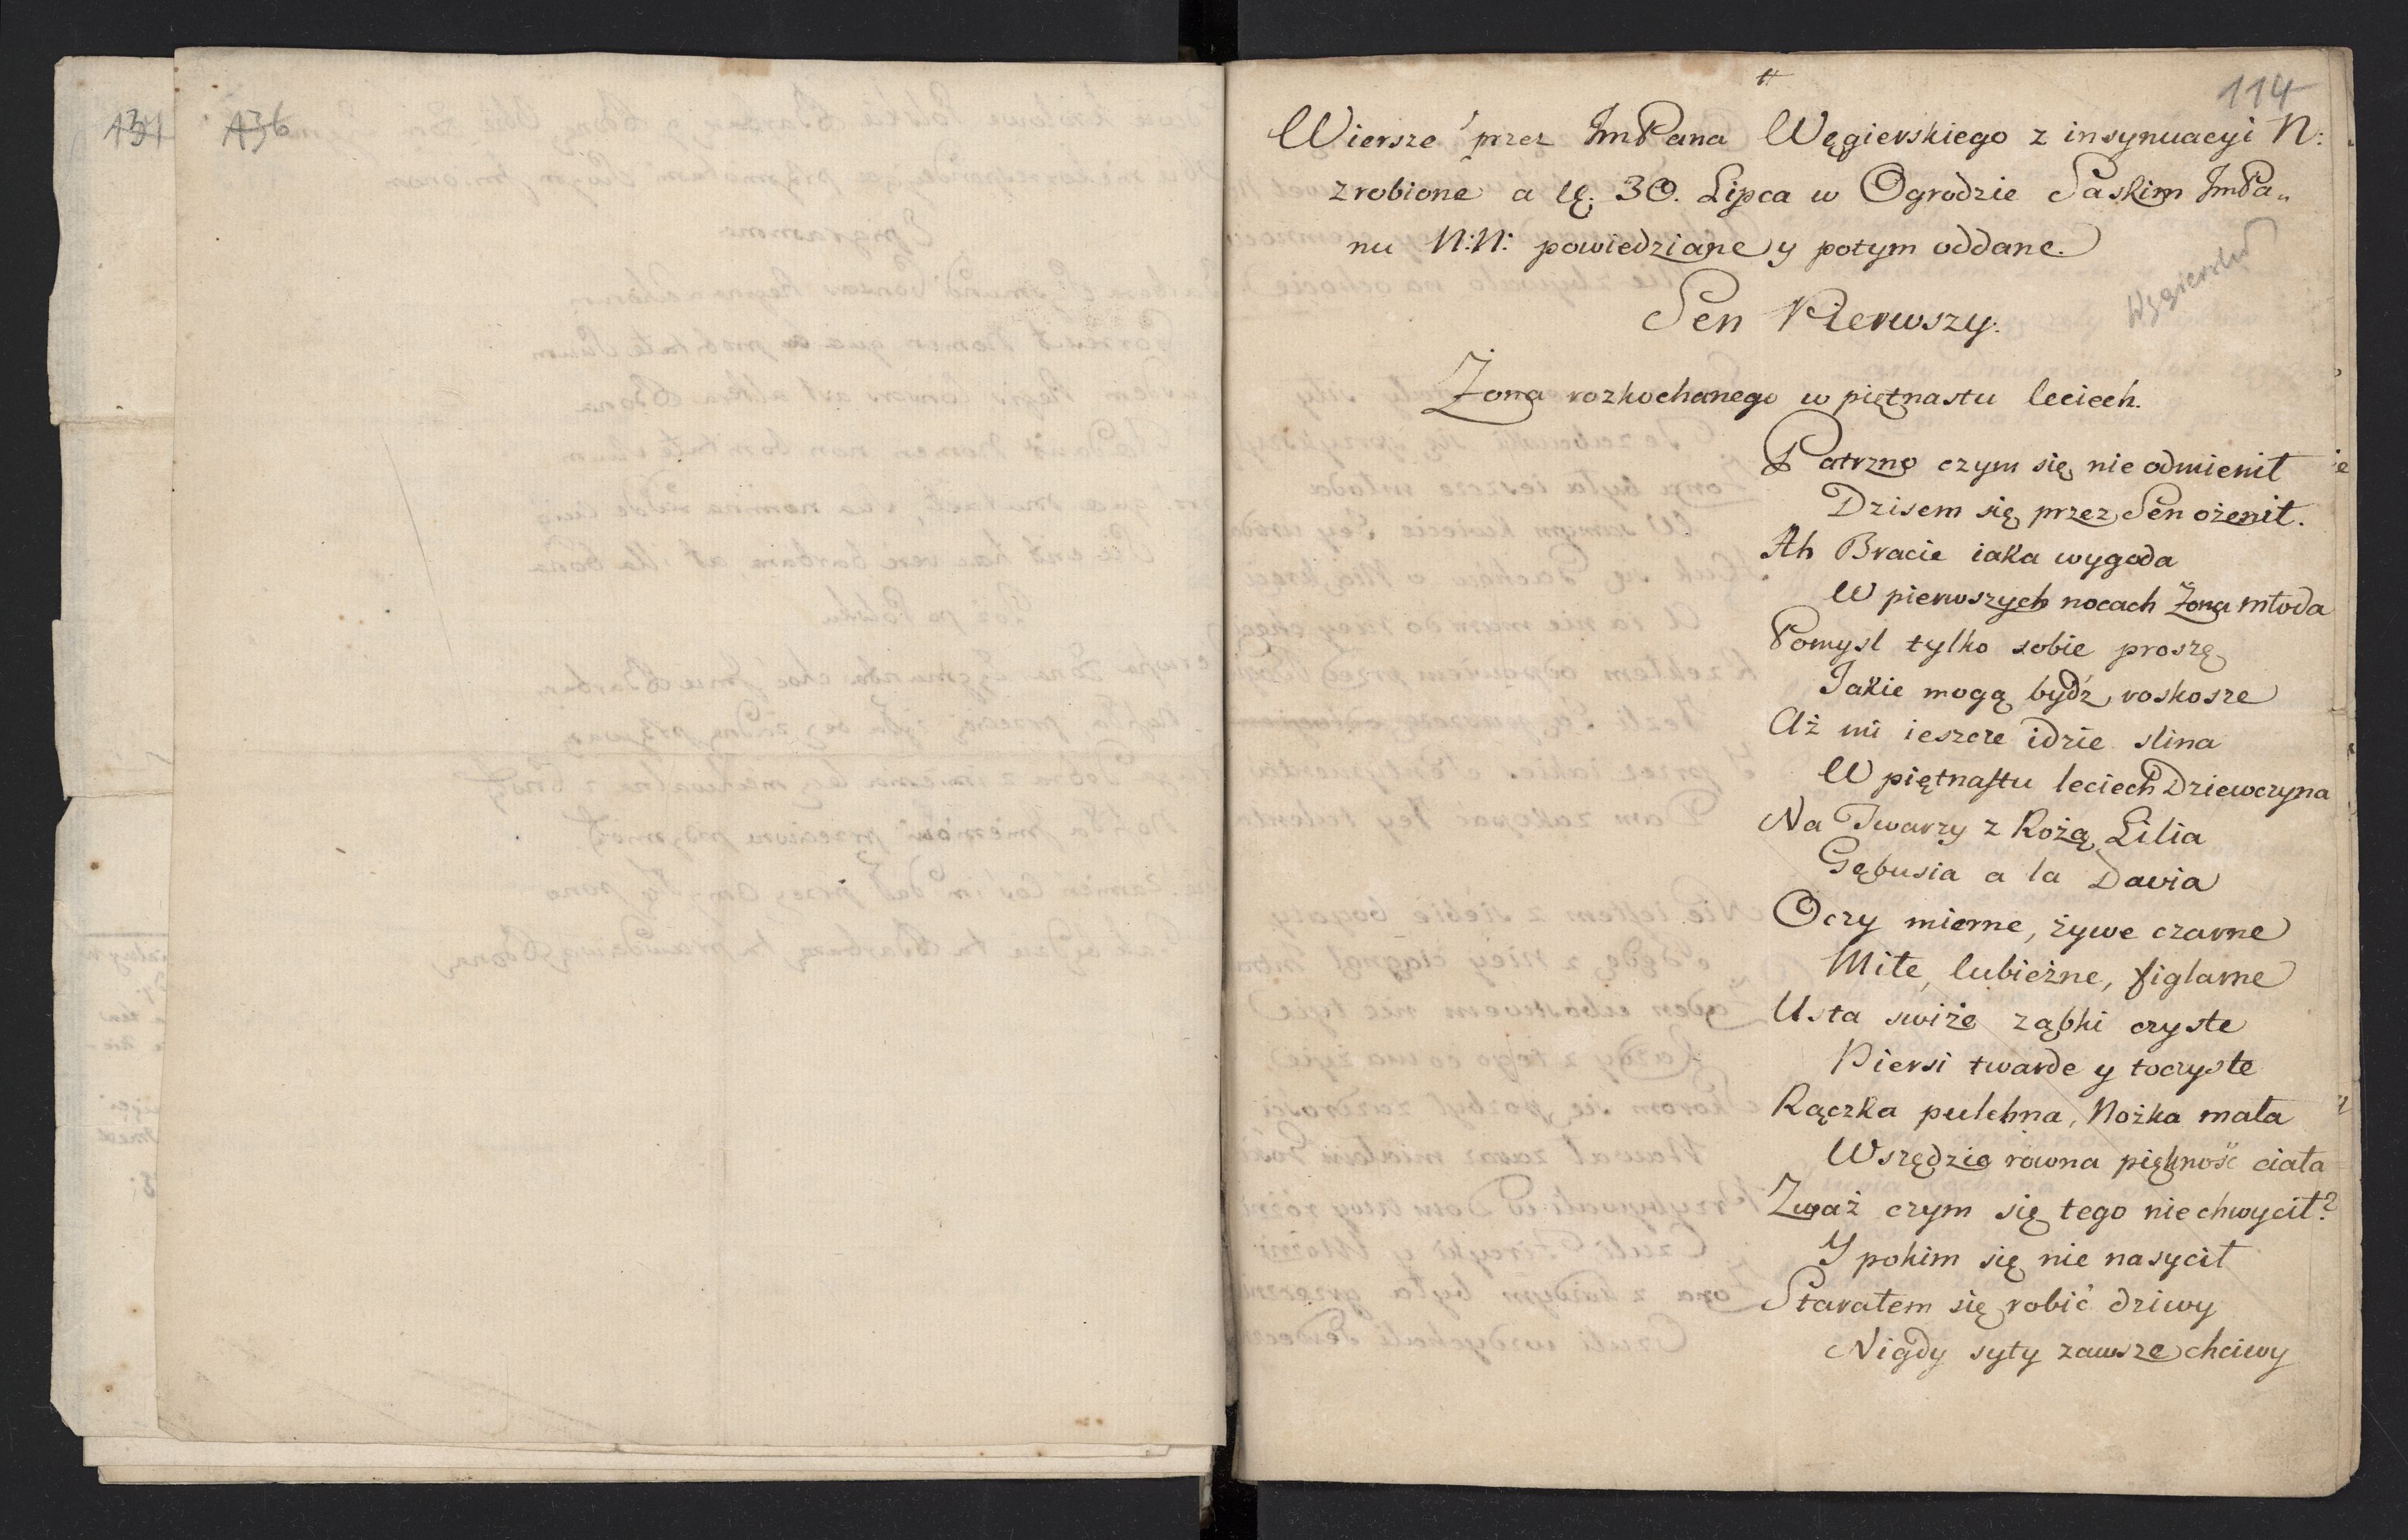 131
136
114
Wiersze przez JmPana Węgierskiego z insynuacyi N:
zrobione a 30. Lipca w Ogrodzie Saskim JmPa„
nu N:N: powiedziane y potym oddane.
Węgierski
Sen Pierwszy.
Żona rozkochanego w piętnastu leciech.
Patrzno czym się nie odmienił
Dzisem się przez Sen ożenił.
Ah Bracie iaka wygoda
W pierwszych nocach Żona młoda
Pomysl tylko sobie proszę
Jakie mogą bydź roskosze
Aż mi ieszcze idzie slina
W piętnastu leciech Dziewczyna
Na Twarzy z Rożą Lilia
Gębusia a la Davia
Oczy mierne, żywe czarne
Miłe, lubieżne, figlarne
Usta swiże ząbki czyste
Piersi twarde y toczyste
Rączka pulchna, Nożka mała
Wszędzie rowna piękność ciała
Zważ czym się tego nie chwycił?
Y pokim się nie nasycił
Starałem się robić dziwy
Nigdy syty zawsze chciwy